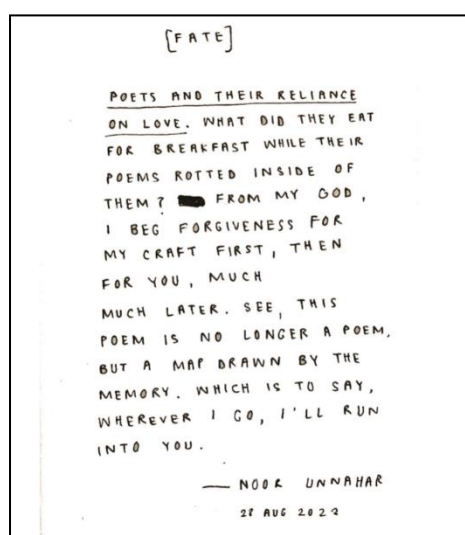 [FATE]
POETS AND THEIR RELIANCE
ON LOVE. WHAT DID THEY EAT
FOR BREAKFAST WHILE THEIR
POEMS ROTTED INSIDE OF
THEM? FROM MY GOD,
I BEG FORGIVENESS FOR
MY CRAFT FIRST, THEN
FOR YOU, MUCH
MUCH LATER. SEE, THIS
POEM IS NO LONGER A POEM.
BUT A MAP DRAWN BY THE
MEMORY. WHICH IS TO SAY,
WHEREVER I GO, I'LL RUN
INTO YOU.
— NOOR UNNAHAR
28 AUG 2023